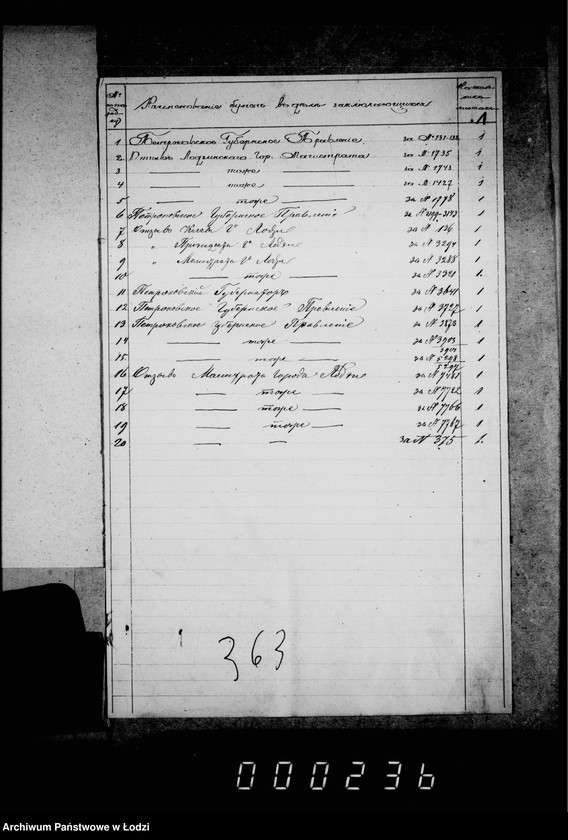 № по по ряд ку Наименованіе бумагъ въ дѣлѣ заключающихся Колич
листовъ
1 Петроковское Губернское Правленіе за № 131-132 1
2 Отзывъ Лодзинскаго Гор. Магистрата за № 1735 1
3 — тоже — за № 1743 1
4 — тоже — за № 1427 1
5 — тоже — за № 1778 1
6 Петроковское Губернское Правленіе за № 3143 1
7 Отзывъ Гᵃ Лодзи за № 136 1
8 „ Президента Гᵃ Лодзи за № 3294 1
9 „ Магистрата Гᵃ Лодзи за № 3288 1
10 — тоже — за № 1.
11 Петроковскій Губернаторъ за № 3641 1
12 Петроковское Губернское Правленіе за № 3727 1
13 Петроковское Губернское Правленіе за № 3873 1
14 — тоже — за № 3903 1
3904
15 — тоже — за № 5298 1
5297
16 Отзывъ Магистрата города Лодзи за № 7481 1
17 — тоже — за № 7722 1
18 — тоже — за № 7766 1
19 — тоже — за № 7767 1
20 — — за № 375 1.
363
000236
Archiwum Państwowe w Łodzi